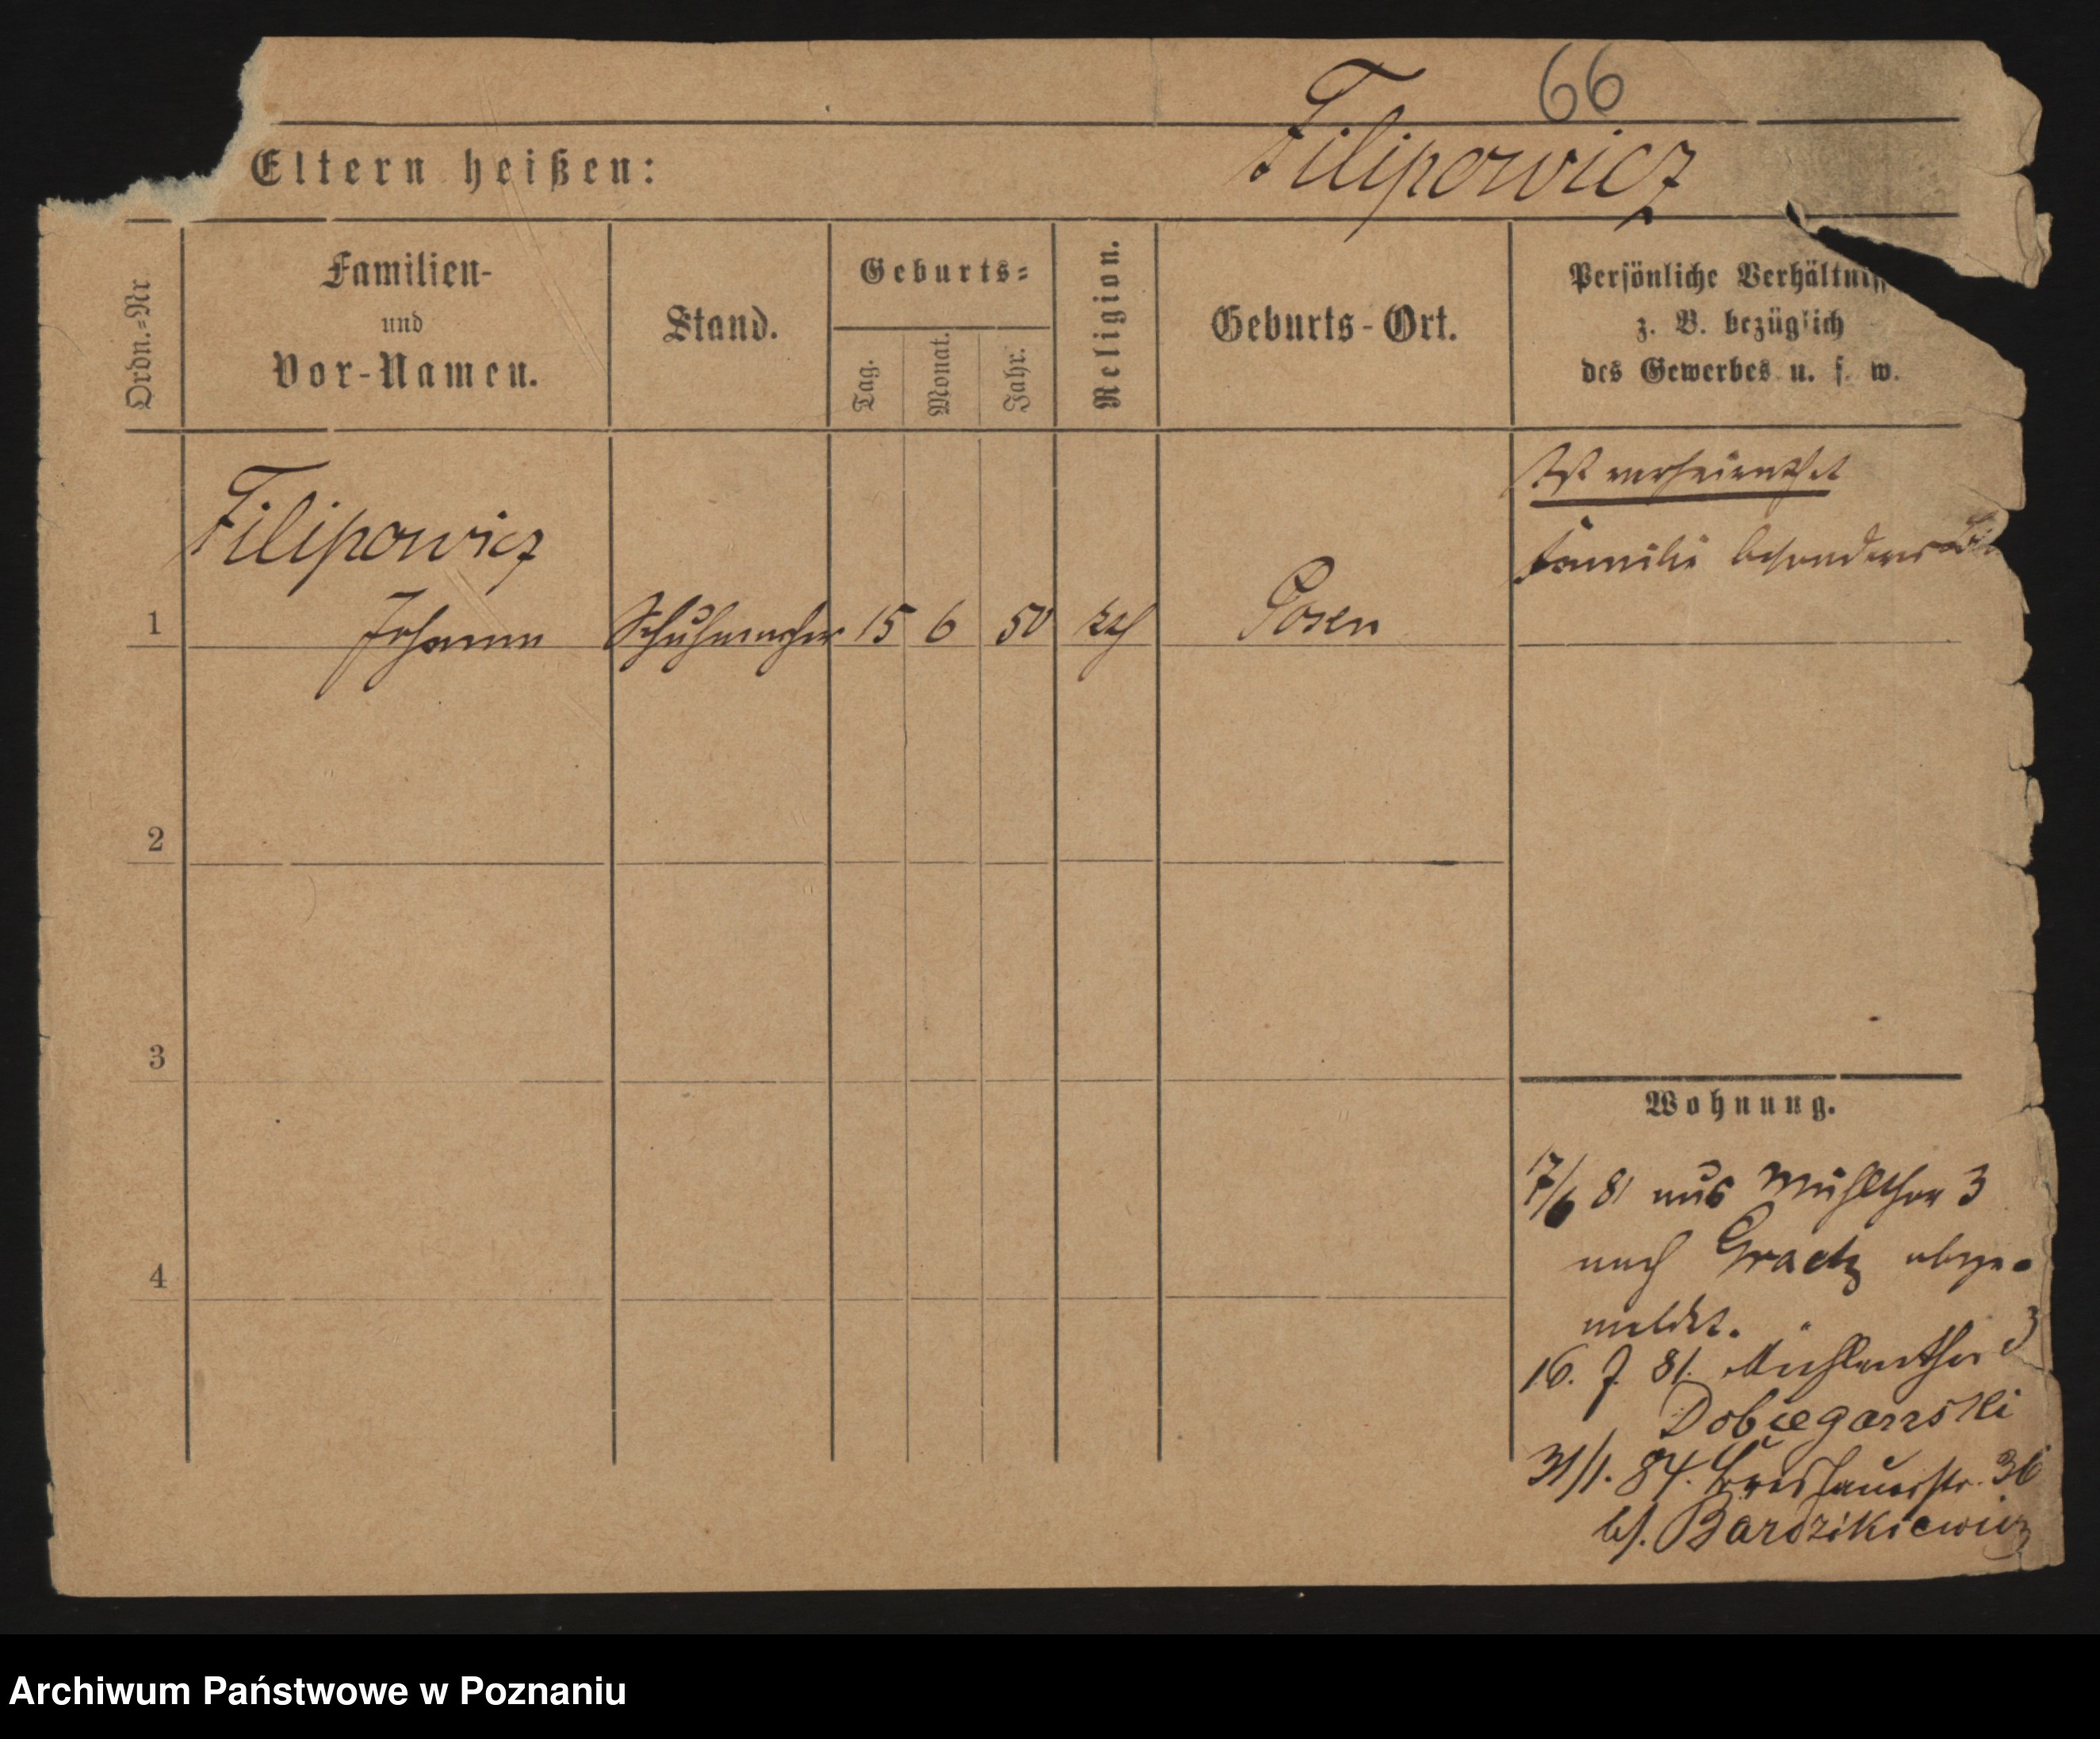 66
Filipowicz
Eltern heißen:
Ordn.=Nr
Familien-
und
Vor-Namen.
Stand.
Geburts=
Tag.
Monat.
Jahr.
Religion.
Geburts-Ort.
Persönliche Verhältniss
z. B. bezüglich
des Gewerbes u. s. w.
Ist verheirathet
Familie besonders
Filipowicz
1 Johann Schuhmacher 15 6 50 kth Posen
2
3
4
Wohnung.
17/6 81 aus Mühlthor 3
nach Graetz abge-
meldet.
16. 7. 81. Mühlenthor 3
Dobiegański
31/1. 84. Breslauerstr. 36
bf. Bardzikiewicz
Archiwum Państwowe w Poznaniu